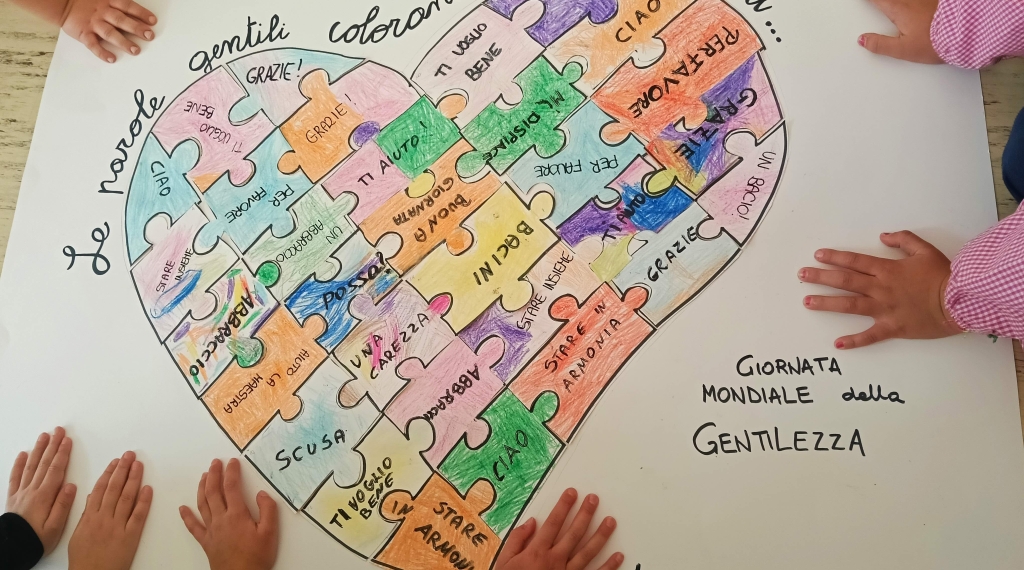 Le parole gentili
GRAZIE!
TI VOGLIO
BENE
CIAO
TI VOGLIO
BENE
GRAZIE!
PER FAVORE
MI DISPIACE
GRAZIE
CIAO
PER FAVORE
TI AIUTO!
PER FAVORE
UN BACIO!
BUONA
GIORNATA
UN
ABBRACCIO
STARE
INSIEME
BACINI
GRAZIE
POSSO
STARE INSIEME
ABBRACCIO
UNA
CAREZZA
STARE IN
ARMONIA
AIUTO LA
MAESTRA
ABBRACCI
SCUSA
CIAO
TI VOGLIO
BENE
STARE
IN ARMONI
GIORNATA
MONDIALE della
GENTILEZZA